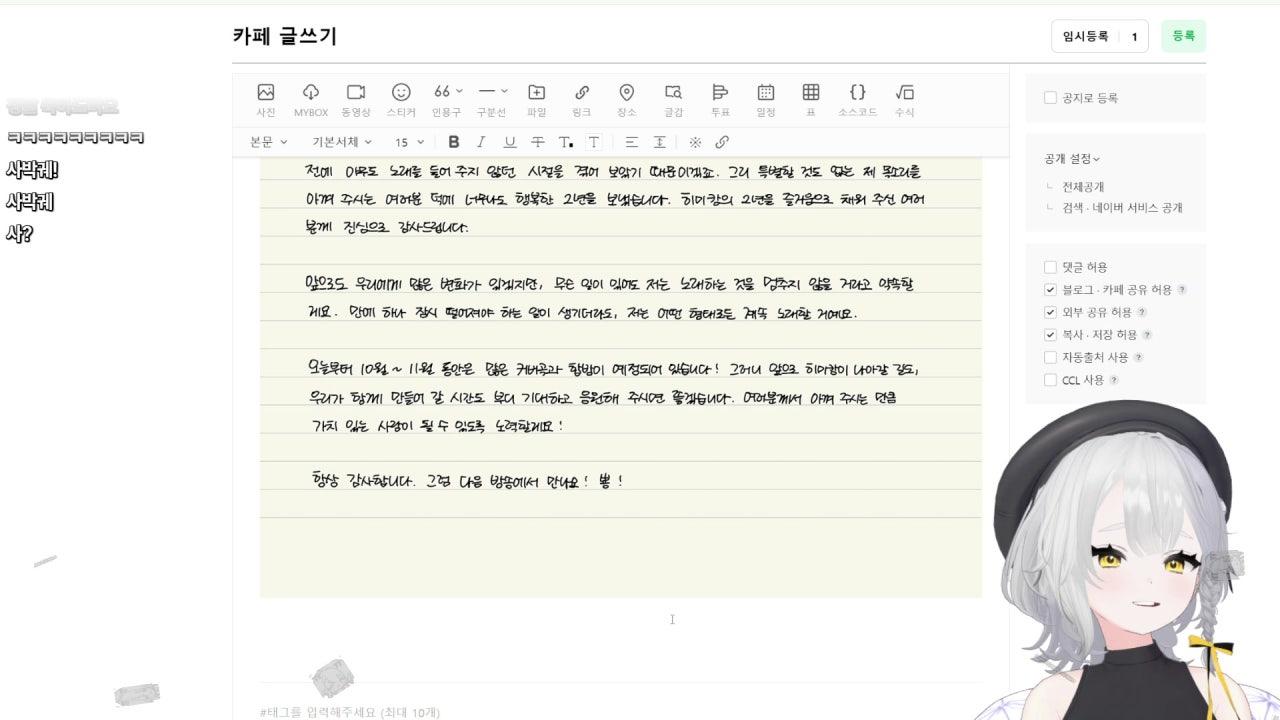 카페 글쓰기
임시등록 1
등록
ㅋㅋㅋㅋㅋㅋㅋㅋㅋ
사박궤!
사박궤
사?
사진 MYBOX 동영상 스티커 인용구 구분선 파일 링크 장소 글감 투표 일정 표 소스코드 수식
본문 기본서체 15 B I U T T. T
전에 아무도 노래를 들어 주지 않던 시절을 겪어 보았기 때문이겠죠. 그리 특별할 것도 없는 제 목소리를
아껴 주시는 여러분 덕에 너무나도 행복한 2년을 보냈습니다. 히미캉의 2년을 즐거움으로 채워 주신 여러
분께 진심으로 감사드립니다.
앞으로도 우리에게 많은 변화가 있겠지만, 무슨 일이 있어도 저는 노래하는 것을 멈추지 않을 거라고 약속할
게요. 만에 하나 잠시 떨어져야 하는 일이 생기더라도, 저는 어떤 형태로든 계속 노래할 거예요.
오늘부터 10월 ~ 11월 동안은 많은 커버곡과 합방이 예정되어 있습니다! 그러니 앞으로 히미캉이 나아갈 길도,
우리가 함께 만들어 갈 시간도 부디 기대하고 응원해 주시면 좋겠습니다. 여러분께서 아껴 주시는 만큼
가치 있는 사람이 될 수 있도록 노력할게요!
항상 감사합니다. 그럼 다음 방송에서 만나요! 뿅!
#태그를 입력해주세요 (최대 10개)
공지로 등록
공개 설정
전체공개
검색 · 네이버 서비스 공개
댓글 허용
블로그 · 카페 공유 허용 ?
외부 공유 허용 ?
복사 · 저장 허용 ?
자동출처 사용 ?
CCL 사용 ?